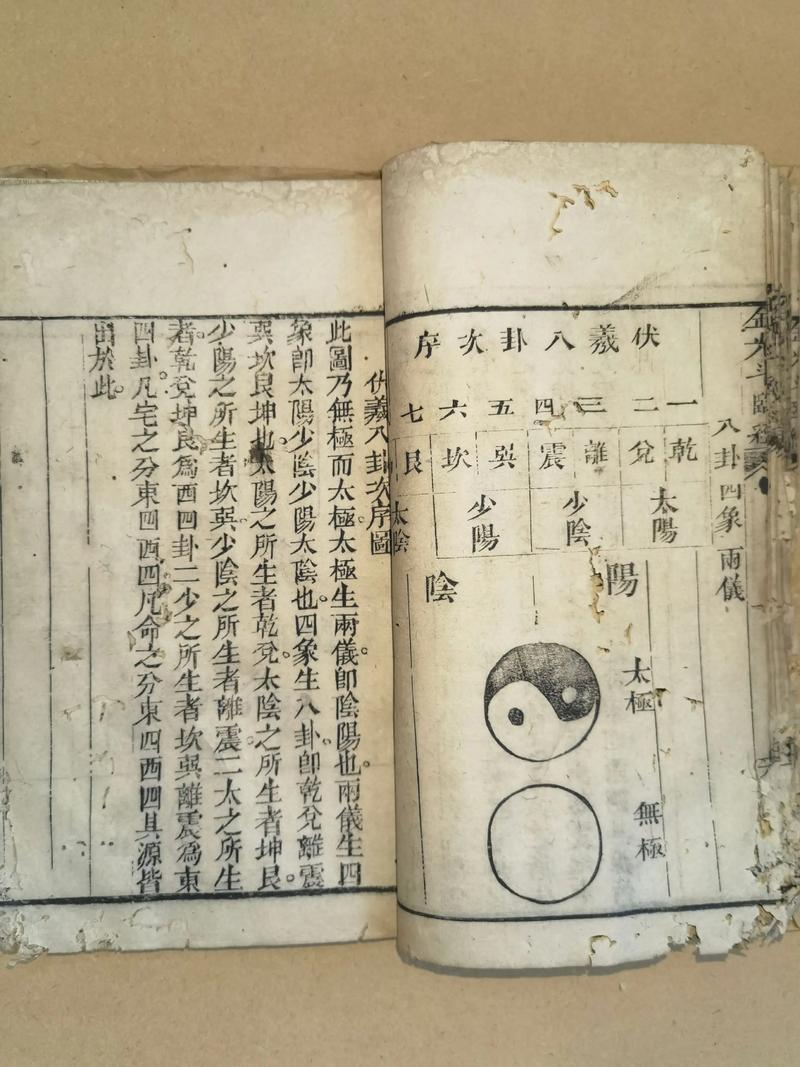 八卦 四象 兩儀
伏羲八卦次序
一 二 三 四 五 六 七
乾 兌 離 震 巽 坎 艮
太陽 少陰 少陽 太陰
陽 陰
太極
無極
伏羲八卦次序圖
此圖乃無極而太極。太極生兩儀。即陰陽也。兩儀生四
象即太陽少陰少陽太陰也。四象生八卦。即乾兌離震
巽坎艮坤也。太陽之所生者乾兌。太陰之所生者坤艮。
少陽之所生者坎巽少陰之所生者離震。二太之所生
者。乾兌坤艮為西四卦二少之所生者坎巽離震為東
四卦。凡宅之分東四西四。凡命之分東四西四其源皆
出於此。